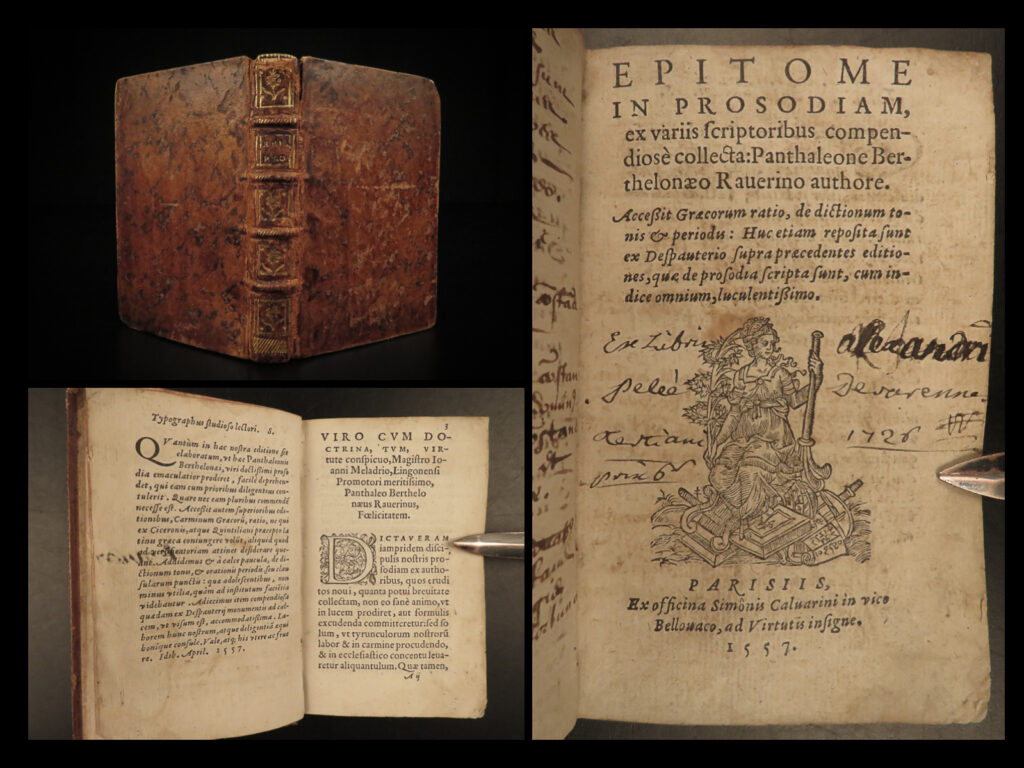 EPITOME
IN PROSODIAM,
ex variis scriptoribus compen-
diosè collecta: Panthaleone Ber-
thelonæo Rauerino authore.
Accessit Græcorum ratio, de dictionum to-
nis & periodis: Huc etiam reposita sunt
ex Despauterio supra præcedentes editio-
nes, quæ de prosodia scripta sunt, cum in-
dice omnium, luculentissimo.
Ex Libris Alexandri
pelei De varenne
1726
PARISIIS,
Ex officina Simonis Caluarini in vico
Bellouaco, ad Virtutis insigne.
1557.
Typographus studioso lectori. S.
QVantùm in hac nostra editione sit
elaboratum, vt hæc Panthaleonis
Berthelonæi, viri doctissimi proso
dia emaculatior prodiret, facilè deprehen-
det, qui eam cum prioribus diligentius con-
tulerit. Quare nec eam pluribus commendè
necesse est. Accessit autem superioribus edi-
tionibus, Carminum Græcorũ, ratio, ne qui
ex Ciceronis, atque Quintiliani præcepto la
tinis græca coniungere volũt, aliquid quod
ad versificatoriam attinet desiderare que-
ant. Addidimus & à calce paucula, de di-
ctionum tonis, & orationis periodis seu clau
sularum punctis: quæ adolescentibus, non
minus vtilia, quàm ad institutum facilia
videbantur. Adiecimus item compendiosa
quædam ex Despauterij monumentis ad cal-
cem, vt visum est, accommodatissima. La-
borem hunc nostrum, atque diligentiã æqui
bonique consule. Vale, atq; his vtere ac frue
re. Idib. April. 1557.
3
VIRO CVM DO-
CTRINA, TVM, VIR-
tute conspicuo, Magistro Io-
anni Meladrio, Lingonensi
Promotori meritissimo,
Panthaleo Berthelo
næus Rauerinus,
Fœlicitatem.
DICTAVERAM
iampridem disci-
pulis nostris pro-
sodiam ex autho-
ribus, quos erudi
tos noui, quanta potui breuitate
collectam, non eo sanè animo, vt
in lucem prodiret, aut formulis
excudenda committeretur: sed so
lum, vt tyrunculorum nostrorũ
labor & in carmine procudendo,
& in ecclesiastico concentu leua-
retur aliquantulum. Quæ tamen,
A ij